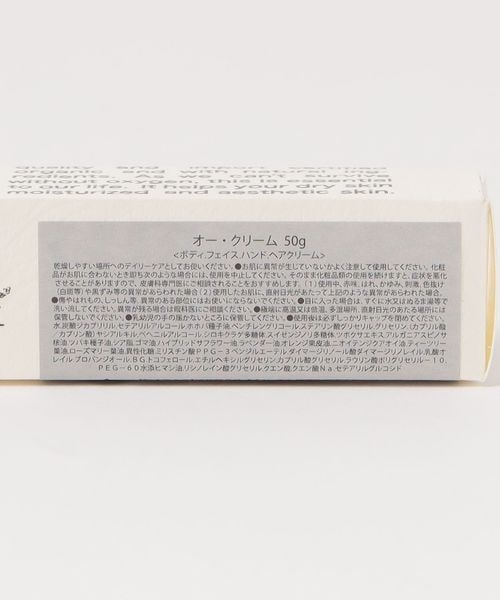 quality and import certified
organic and with natural ing-
redients. As we can't survive
without oxygen, this is essential
to our life. It helps your dry skin
moisturized and aesthetic skin.
オー・クリーム 50g
<ボディ,フェイス,ハンド,ヘアクリーム>
乾燥しやすい場所へのデイリーケアとしてお使いください。●お肌に異常が生じていないかよく注意して使用してください。化粧
品がお肌に合わないとき即ち次のような場合には、使用を中止してください。そのまま化粧品類の使用を続けますと、症状を悪化
させることがありますので、皮膚科専門医にご相談されることをおすすめします。(1)使用中、赤味、はれ、かゆみ、刺激、色抜け
(白斑等)や黒ずみ等の異常があらわれた場合(2)使用したお肌に、直射日光があたって上記のような異常があらわれた場合。
●傷やはれもの、しっしん等、異常のある部位にはお使いにならないでください。●目に入った場合は、すぐに水又はぬるま湯等で
洗い流してください。異常が残る場合は眼科医にご相談ください。●極端に高温又は低温、多湿場所、直射日光のあたる場所には
保管しないでください。●乳幼児の手の届かないところに保管してください。●使用後は必ずしっかりキャップを閉めてください。
水,炭酸ジカプリリル,セテアリルアルコール,ホホバ種子油,ペンチレングリコール,ステアリン酸グリセリル,グリセリン,(カプリル酸
/カプリン酸)ヤシアルキル,ベヘニルアルコール,シロキクラゲ多糖体,スイゼンジノリ多糖体,ツボクサエキス,アルガニアスピノサ
核油,ツバキ種子油,シア脂,ゴマ油,ハイブリッドサフラワー油,ラベンダー油,オレンジ果皮油,ニオイテンジクアオイ油,ティーツリー
葉油,ローズマリー葉油,異性化糖,ミリスチン酸PPG-3ベンジルエーテル,ダイマージリノール酸ダイマージリノレイル,乳酸オ
レイル,プロパンジオール,BG,トコフェロール,エチルヘキシルグリセリン,カプリル酸グリセリル,ラウリン酸ポリグリセリル-10,
PEG-60水添ヒマシ油,リシノレイン酸グリセリル,クエン酸,クエン酸Na,セテアリルグルコシド